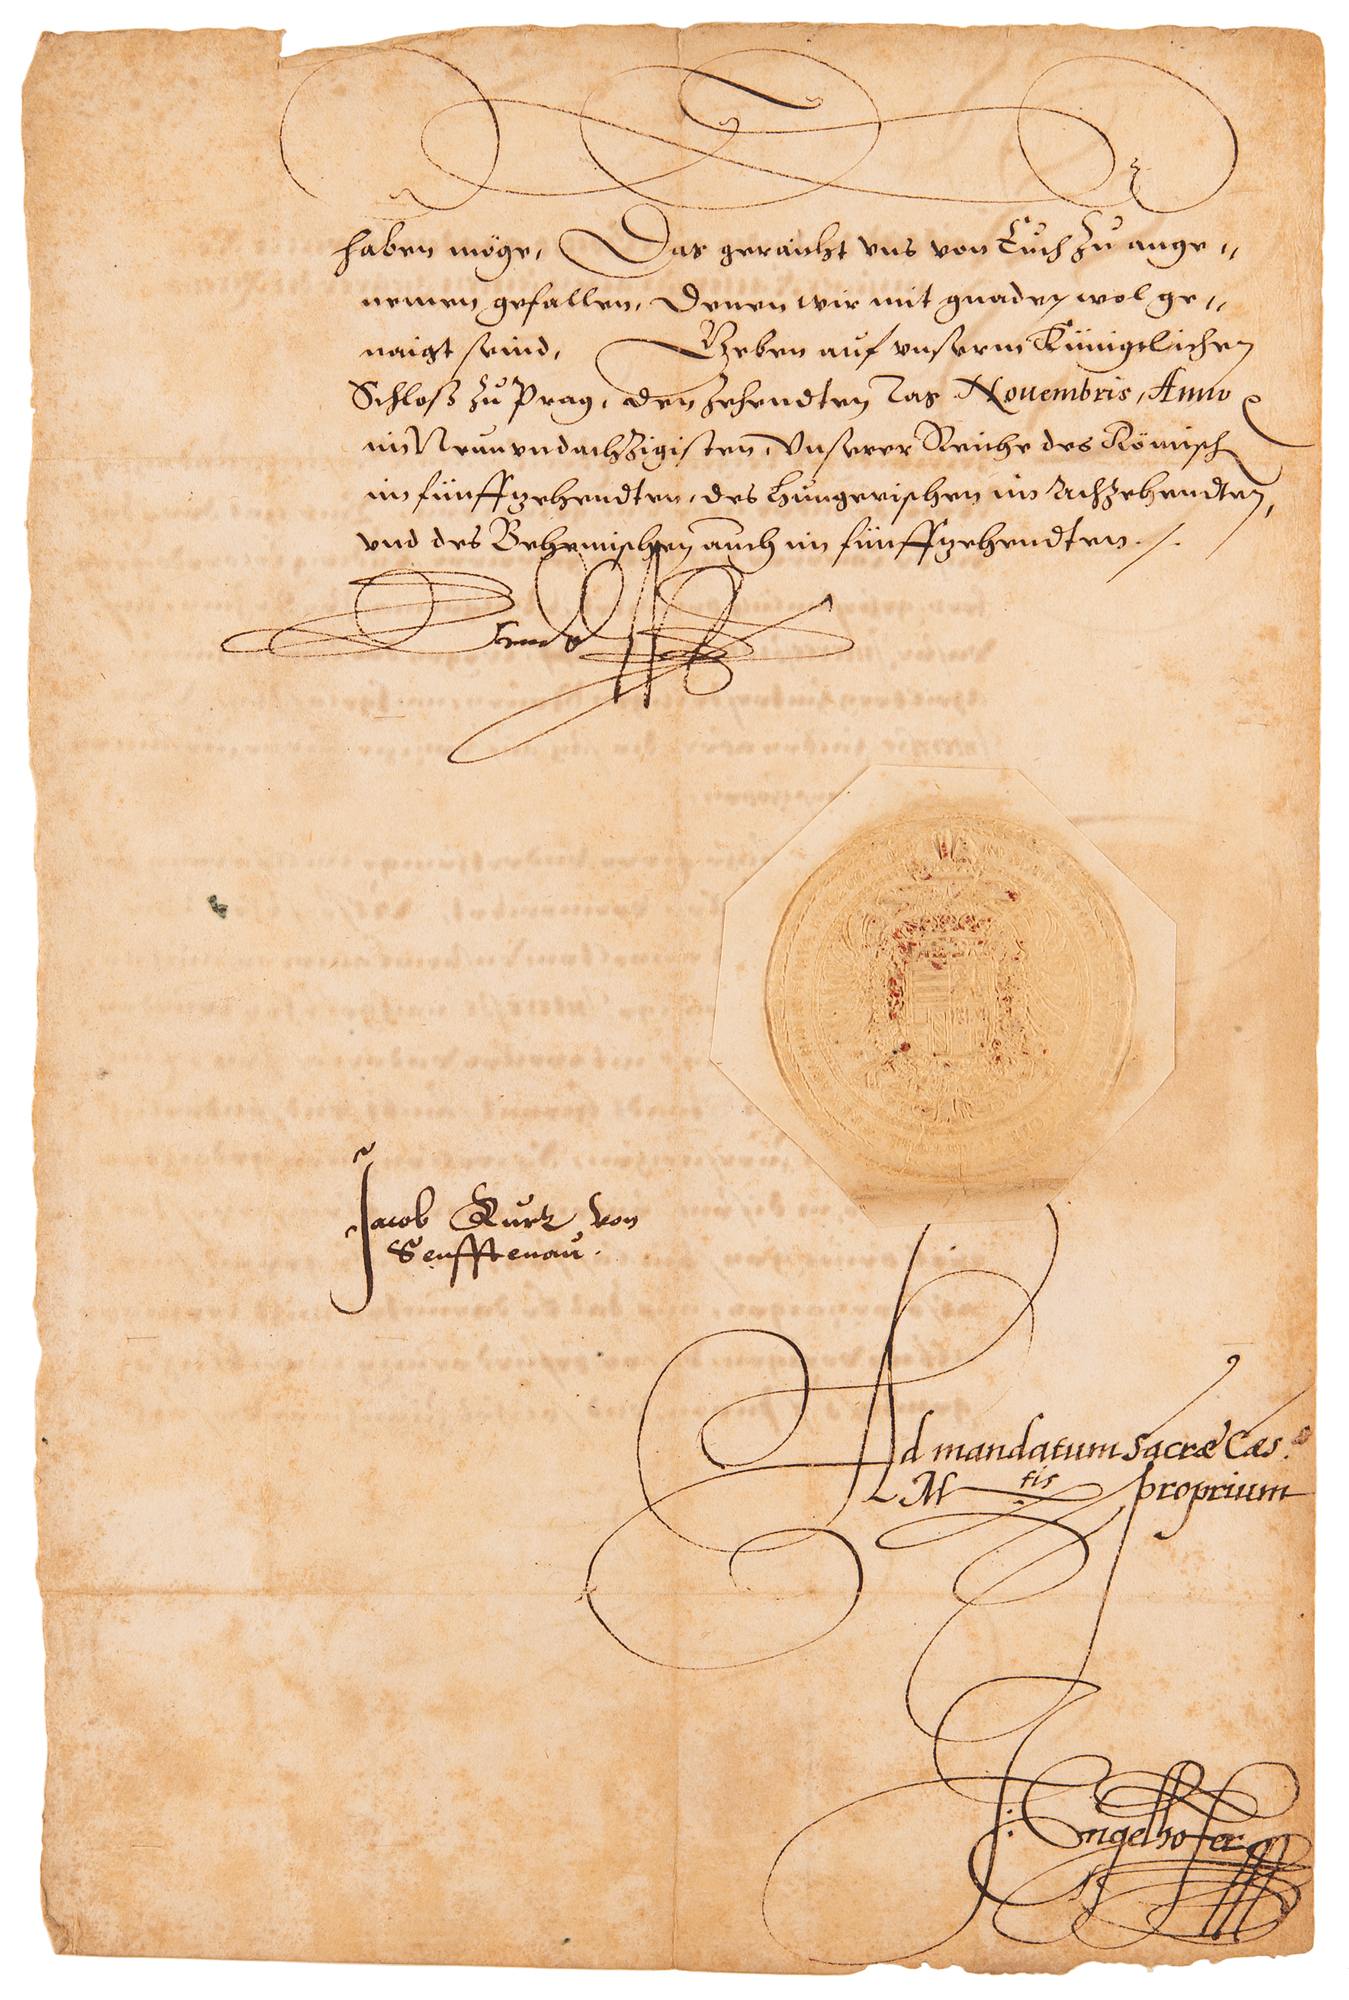 haben möge, Das geraicht vns von Euch zu ange=
nemen gefallen, Denen wir mit gnaden wol ge=
naigt seind, Geben auf vnserm Künigclichen
Schloß zu Prag, den zehendten Tag Nouembris, Anno
im Neunvndachtzigisten, Vnserer Reiche des Römisch
im fünfftzehendten, des Hungerischen im Achtzehendten,
vnd des Behemischen auch im fünfftzehendten.
Jacob Kurtz von
Senfftenau.
Ad mandatum Sacræ Cæs.
M tis proprium
J: Engelhofer